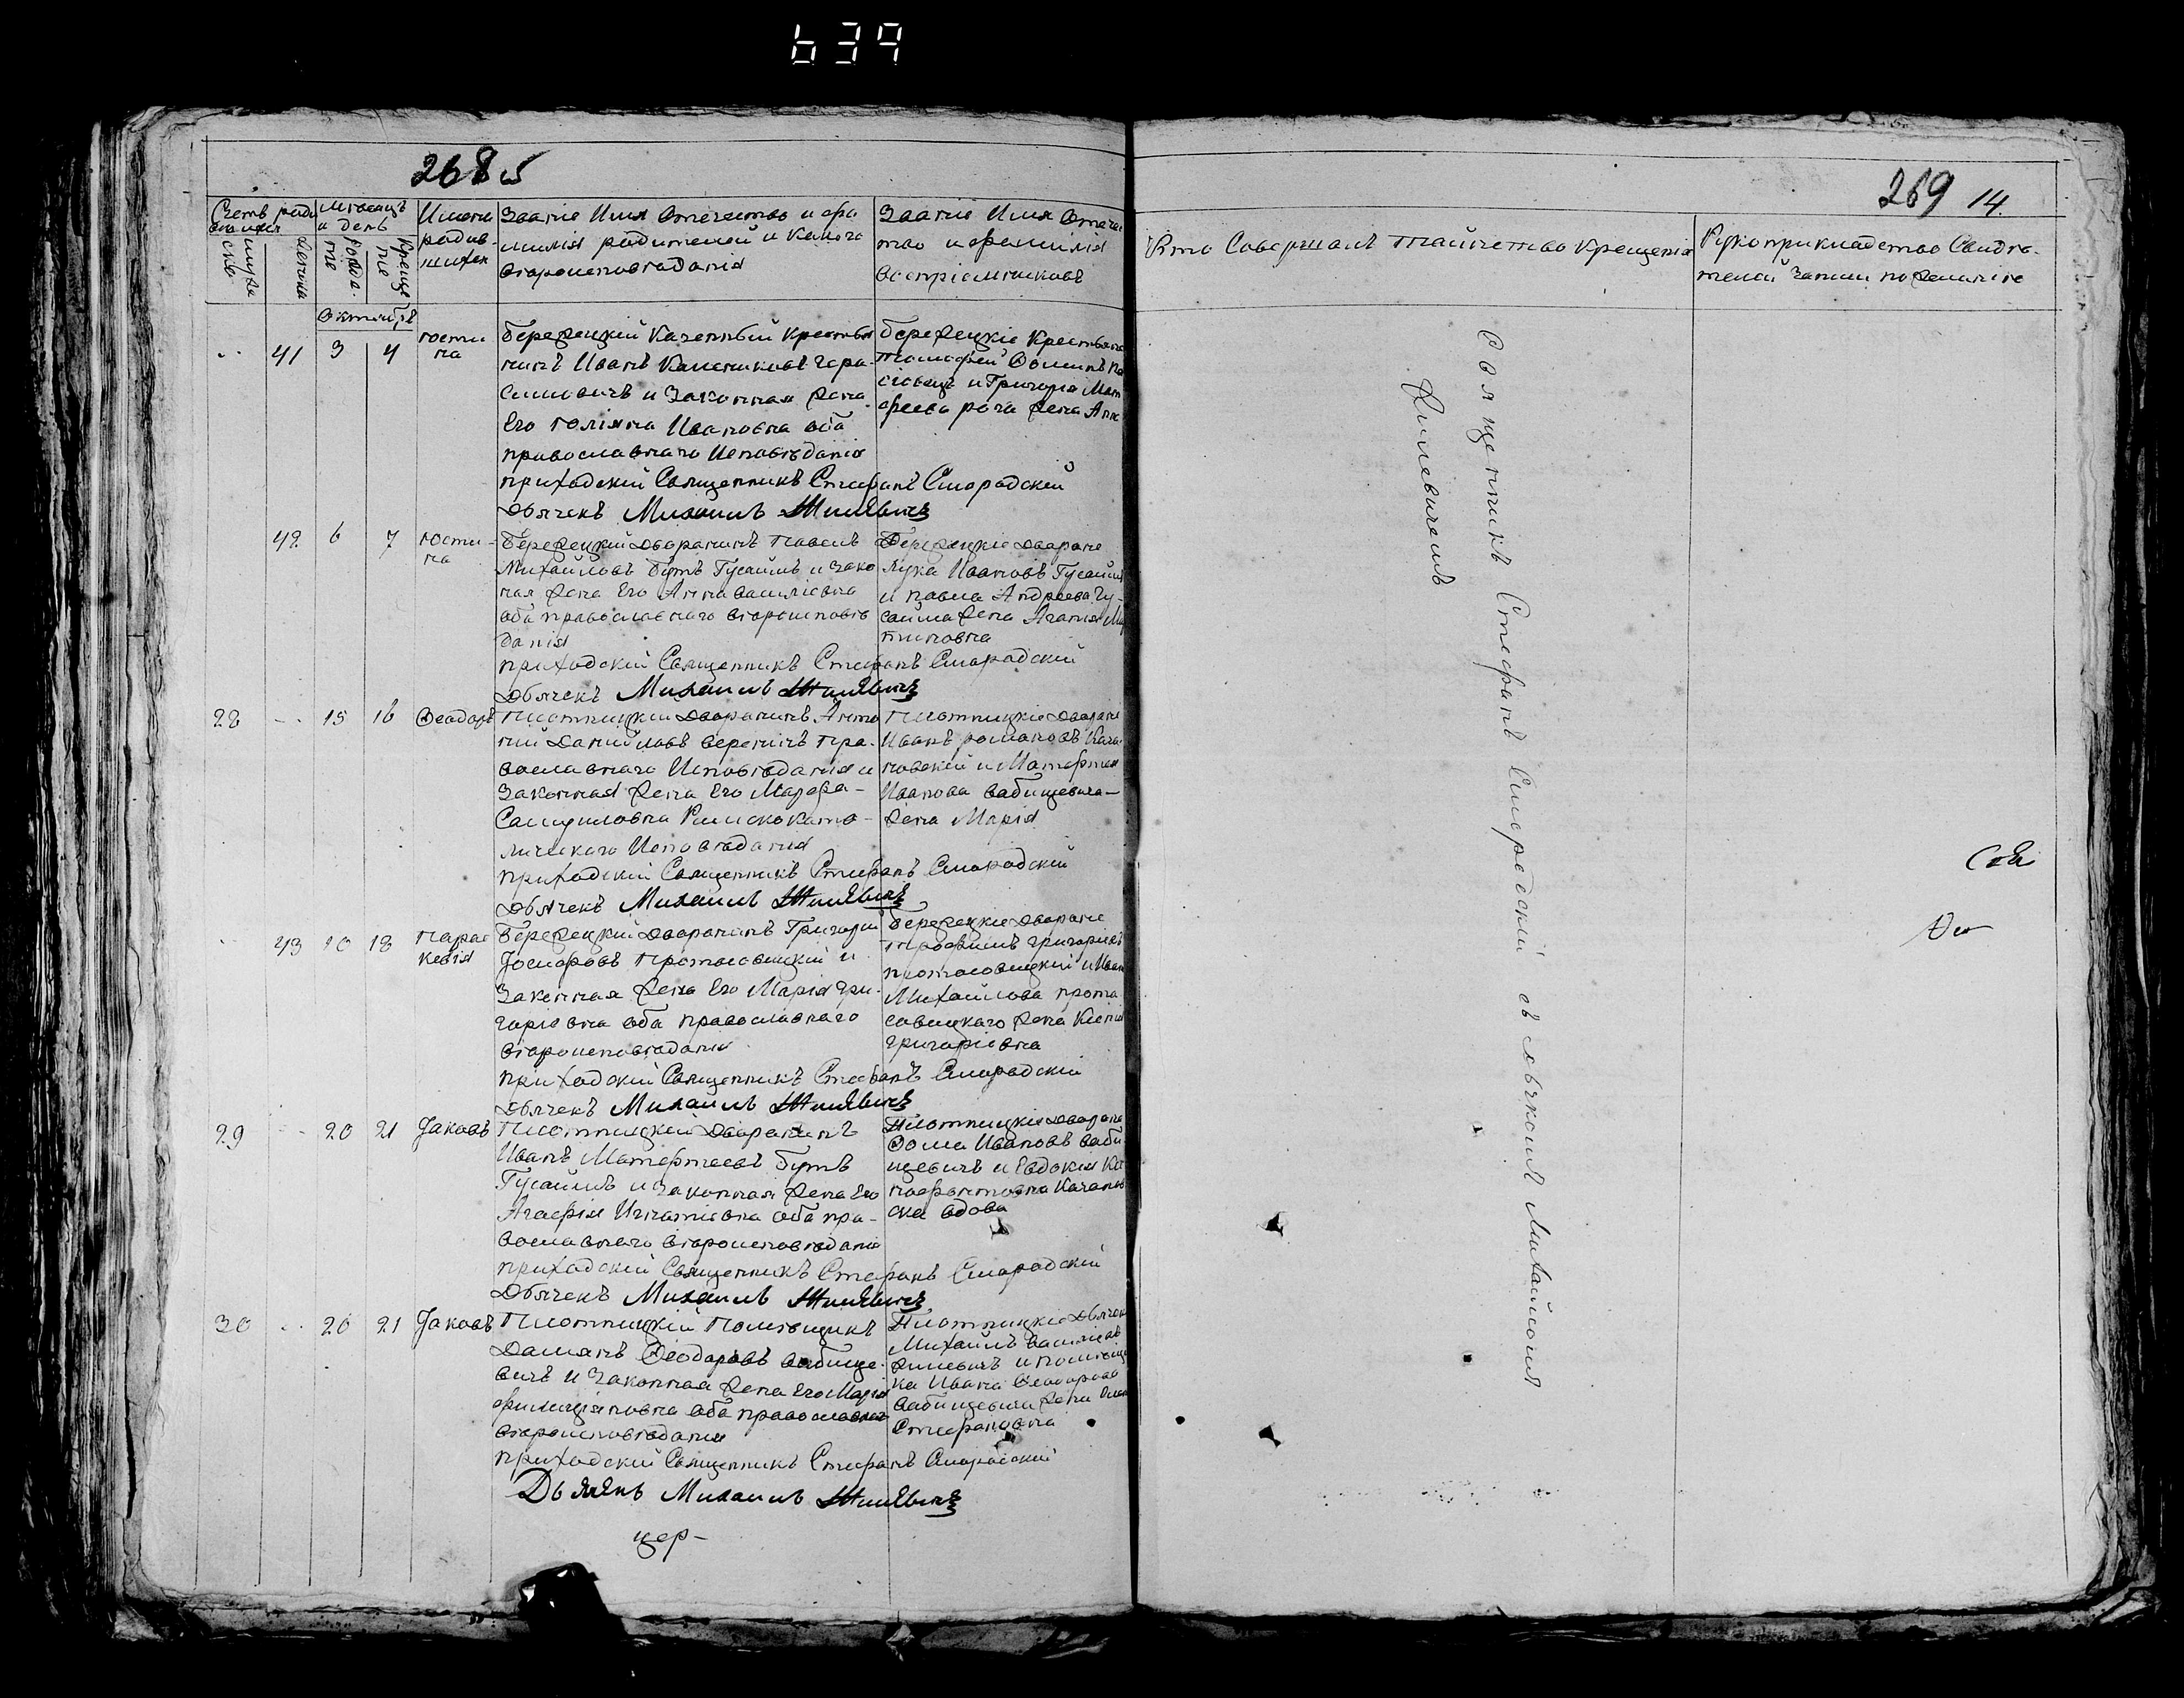 639
268
269 14.
Счетъ роди
вшихся
мужеска
женска
Мѣсяцъ
и день
рожде.
ніе
креще
ніе
Имена
родив-
шихся
Званіе Имя Отечество и фа
милія родителей и Какого
вѣроисповѣданія
Званіе Имя Отече
тво и фамилія
Воспріемниковъ
Кто Совершалъ Таинство Крещенія
Рукоприкладство Свидѣ-
телей Записи по желанію
Октябрь
41 3 4
Юсти
на
Бережецкій Казенный Крестья
нинъ Иванъ Калениковъ Гера-
симовичъ и Законная жена
Его Юліяна Ивановна оба
православнаго Исповѣданія
приходскій Священникъ Стефанъ Смородскій
Дьячекъ Михаилъ Жилевичъ
Бережецкіе Крестьяне
Тимофей Ѳоминъ
и Григорія Мат
феева жена Анна
42 6 7
Юсти-
на
Бережецкій Дворанинъ Павелъ
Михайловъ Бутъ Гусаимъ и Зако
ная жена Его Анна Василіевна
оба православнаго вѣроисповѣ
данія
приходскій Священникъ Стефанъ Смородскій
Дьячекъ Михаилъ Жилевичъ
Бережецкіе Дворане
Лука Ивановъ Гусаимъ
и Павла Андреева Гу-
саима жена Агапія
тиновна
28 15 16
Ѳеодоръ
Плотницкій Дворанинъ Анто
ній Даниловъ Вереничъ Пра-
вославнаго Исповѣданія и
Законная жена Его Марѳа-
Самуиловна Римскокато-
лическаго Исповѣданія
приходскій Священникъ Стефанъ Смородскій
Дьячекъ Михаилъ Жилевичъ
Плотницкіе Дворане
Иванъ романовъ Кача
новскій и Матерѳея
Иванова Вабищевича-
жена Марія
43 10 18
Парас
кевія
Бережецкій Дворанинъ Григорій
Іосифовъ Протасовицкій и
Законная жена Его Марія Гри-
горіевна оба православнаго
вѣроисповѣданія
приходскій Священникъ Стефанъ Смородскій
Дьячекъ Михаилъ Жилевичъ
Бережецкіе Дворане
Трофимъ григоріевъ
протасовицкій и Иван
Михайлова прота
совицкаго жена Ксенія
григоріевна
29 20 21
Іаковъ
Плотницкій Дворанинъ
Иванъ Матерѳеевъ Бутъ
Гусаимъ и Законная жена Его
Агафія Игнатіевна оба пра-
вославнаго вѣроисповѣданія
приходскій Священникъ Стефанъ Смородскій
Дьячекъ Михаилъ Жилевичъ
Плотницкіе Дворане
Ѳома Ивановъ Ваби
щевичъ и Евдокія Ка
Качанов
ска вдова
30 20 21
Іаковъ
Плотницкій Помѣщикъ
Дамянъ Ѳеодоровъ Вабище-
вичъ и Законная жена Его Марія
Фелиціяновна оба православнаго
вѣроисповѣданія
приходскій Священникъ Стефанъ Смородскій
Дьячекъ Михаилъ Жилевичъ
Плотницкіе Дьячек
Михаилъ Василіевъ
Жилевичъ и помѣщи
ка Ивана Ѳеодорова
Вабищевича жена
Стефановна
цер-
Священникъ Стефанъ Смородскій съ дьячкомъ Михайломъ
Жилевичемъ